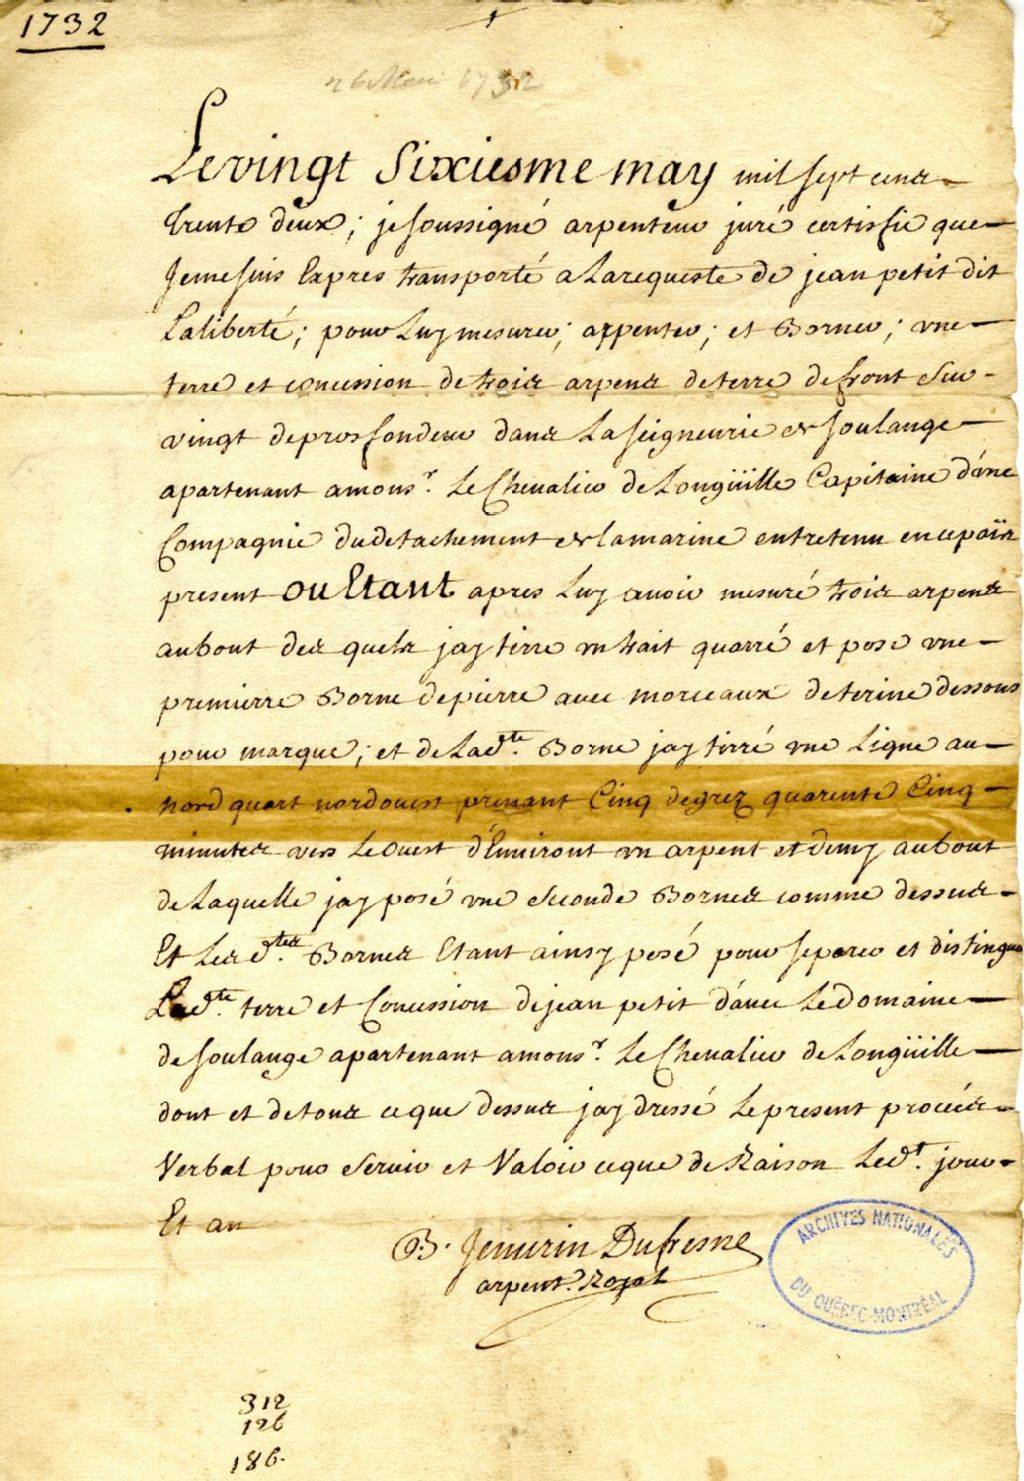 1732
26 Mai 1732
Le vingt Sixiesme may mil sept cens
trente deux; je soussigné arpenteur juré certiffie que
Je me suis Expres transporté a La requeste de jean petit dit
Laliberté; pour Luy mesurer; arpenter; et Borner; une
terre et concession de trois arpens de terre de front sur
vingt de proffondeur dans La seigneurie de soulange
apartenant a monsr. Le Chevalier de Longüille Capitaine d'une
Compagnie du detachement de la marine entretenu en ce païs
present ou Etant apres Luy avoir mesuré trois arpens
au bout des quels jay tirre un trait quarré et posé une
premierre Borne de pierre avec morceaux de terine dessous
pour marque; et de La dte. Borne jay tirré une Ligne au
nord quart nordouest prenant Cinq degrez quarente Cinq
minutes vers Le Ouest d'Environt un arpent et demy au bout
de Laquelle jay posé une seconde Bornes comme dessus
Et Les dtes. Bornes Etant ainsy posé pour separer et distinguer
La dte. terre et Concession de jean petit d'avec Le domaine
de soulange apartenant a monsr. Le Chevalier de Longüille
dont et de tous ce que dessus jay dressé Le present procés
Verbal pour Servir et Valoir ce que de Raison Le dt. jour
Et an
Dufresne
arpentr. Royal
ARCHIVES NATIONALES
DU QUÉBEC-MONTRÉAL
312
126
186.